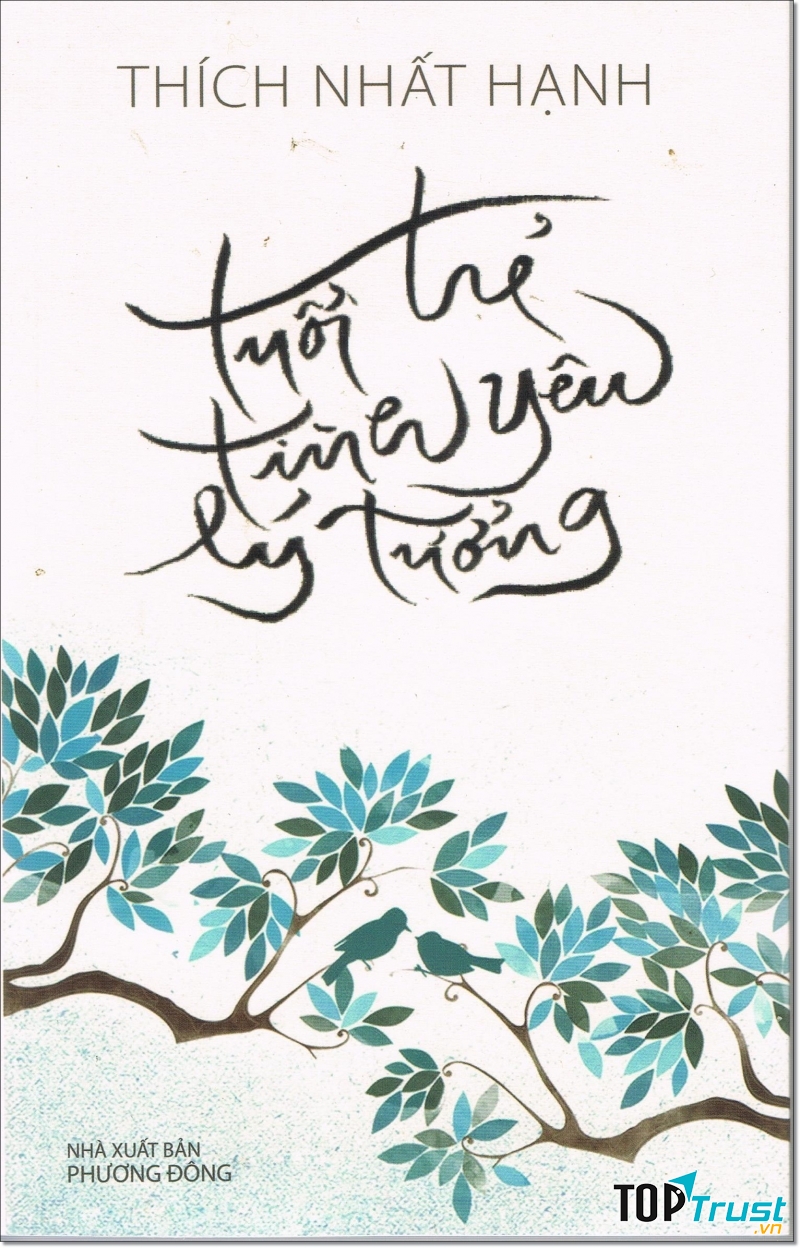 THÍCH NHẤT HẠNH
tuổi trẻ
tình yêu
lý tưởng
NHÀ XUẤT BẢN
PHƯƠNG ĐÔNG
TOPTrust
.vn